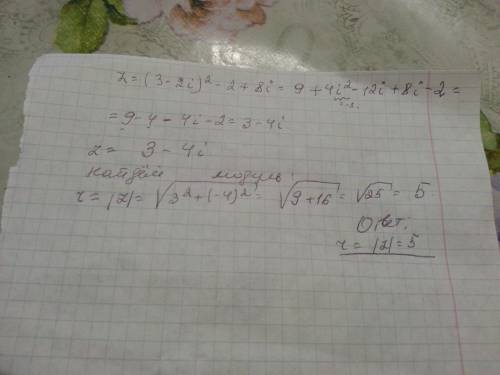 z = (3 - 2i)² - 2 + 8i = 9 + 4i² - 12i + 8i - 2 =
= 9 - 4 - 4i - 2 = 3 - 4i
z = 3 - 4i
Найдём модуль:
r = |z| = √3² + (-4)² = √9 + 16 = √25 = 5
Ответ:
r = |z| = 5